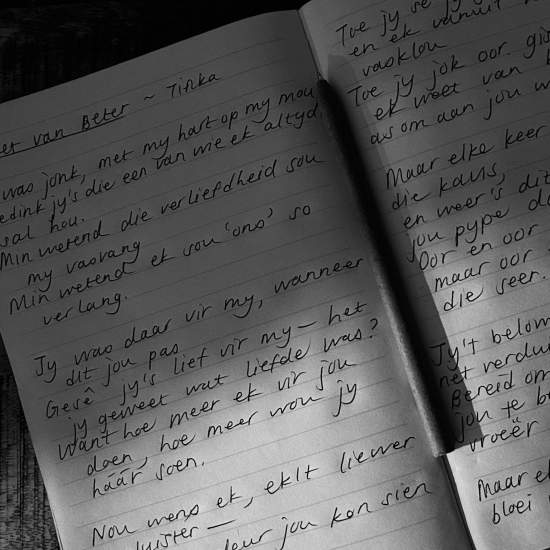 et van Beter ~ Tinka
was jonk, met my hart op my mou
edink jy's die een van wie ek altyd
sal hou.
Min wetend die verliefdheid sou
my vasvang
Min wetend ek sou 'ons' so
verlang.
Jy was daar vir my, wanneer
dit jou pas.
Gesê jy's lief vir my — het
jy geweet wat liefde was?
Want hoe meer ek vir jou
doen, hoe meer wou jy
háár soen.
Nou wens ek, ek't liewer
luister —,
deur jou kon sien
Toe jy se
en ek vanuit
vasklou
Toe jy jok oor
ek weet van
as om aan jou
Maar elke keer
die kans,
en weer's dit
jou pype
Oor en oor
maar oor
die seer.
Jy't belo
net verdu
Bereid om
jou te b
vroeër
Maar e
bloei